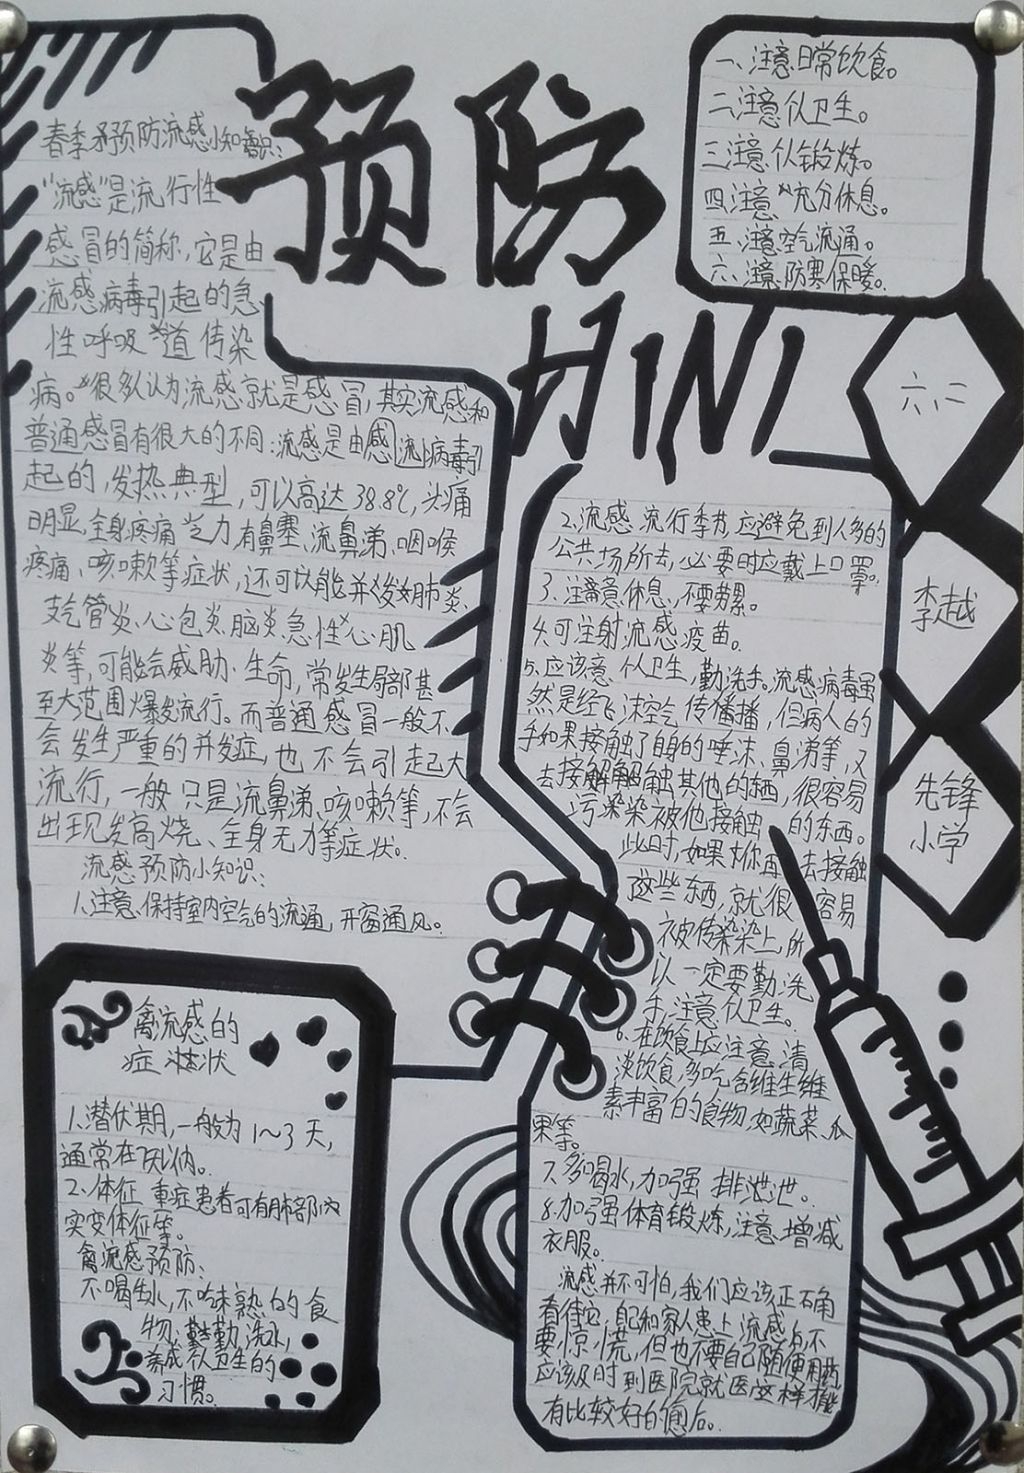 预防
H1N1
春季预防流感小知识:
“流感”是流行性
感冒的简称,它是由
流感病毒引起的急
性呼吸道传染
病。很多人认为流感就是感冒,其实流感和
普通感冒有很大的不同:流感是由感流病毒引
起的,发热典型,可以高达38.8℃,头痛
明显,全身疼痛乏力,有鼻塞、流鼻涕、咽喉
疼痛、咳嗽等症状,还可以能并发如肺炎、
支气管炎、心包炎、脑炎、急性心肌
炎等,可能会威胁生命,常发生局部甚
至大范围爆发流行。而普通感冒一般不
会发生严重的并发症,也不会引起大
流行,一般只是流鼻涕、咳嗽等,不会
出现发高烧、全身无力等症状。
流感预防小知识:
1.注意保持室内空气的流通,开窗通风。
一、注意日常饮食。
二、注意个卫生。
三、注意个锻炼。
四、注意充分休息。
五、注意空气流通。
六、注意防寒保暖。
六、二
李越
先锋
小学
2.流感流行季节,应避免到人多的
公共场所去,必要时应戴上口罩。
3.注意休息,不要劳累。
4.可注射流感疫苗。
5.应该意个人卫生,勤洗手。流感病毒虽
然是经飞沫空气传播,但病人的
手如果接触了自身的唾沫、鼻涕等,又
去接触其他的东西,很容易
污染被他接触的东西。
此时,如果你再去接触
这些东西,就很容易
被传染上,所
以一定要勤洗
手,注意个卫生。
6.在饮食上应注意清
淡饮食,多吃含维生维
素丰富的食物,如蔬菜、瓜
果等。
7.多喝水,加强排泄。
8.加强体育锻炼,注意增减
衣服。
流感并不可怕,我们应该正确
看待它,自己和家人患上流感后,不
要惊慌,但也不要自己随便用药,
应该及时到医院就医,这样才能
有比较好的愈后。
禽流感的
症状
1.潜伏期,一般为1~3天,
通常在7天以内。
2.体征 重症患者可有肺部
实变体征等。
禽流感预防:
不喝生水,不吃未熟的食
物;勤洗水,
养成个卫生的
习惯。